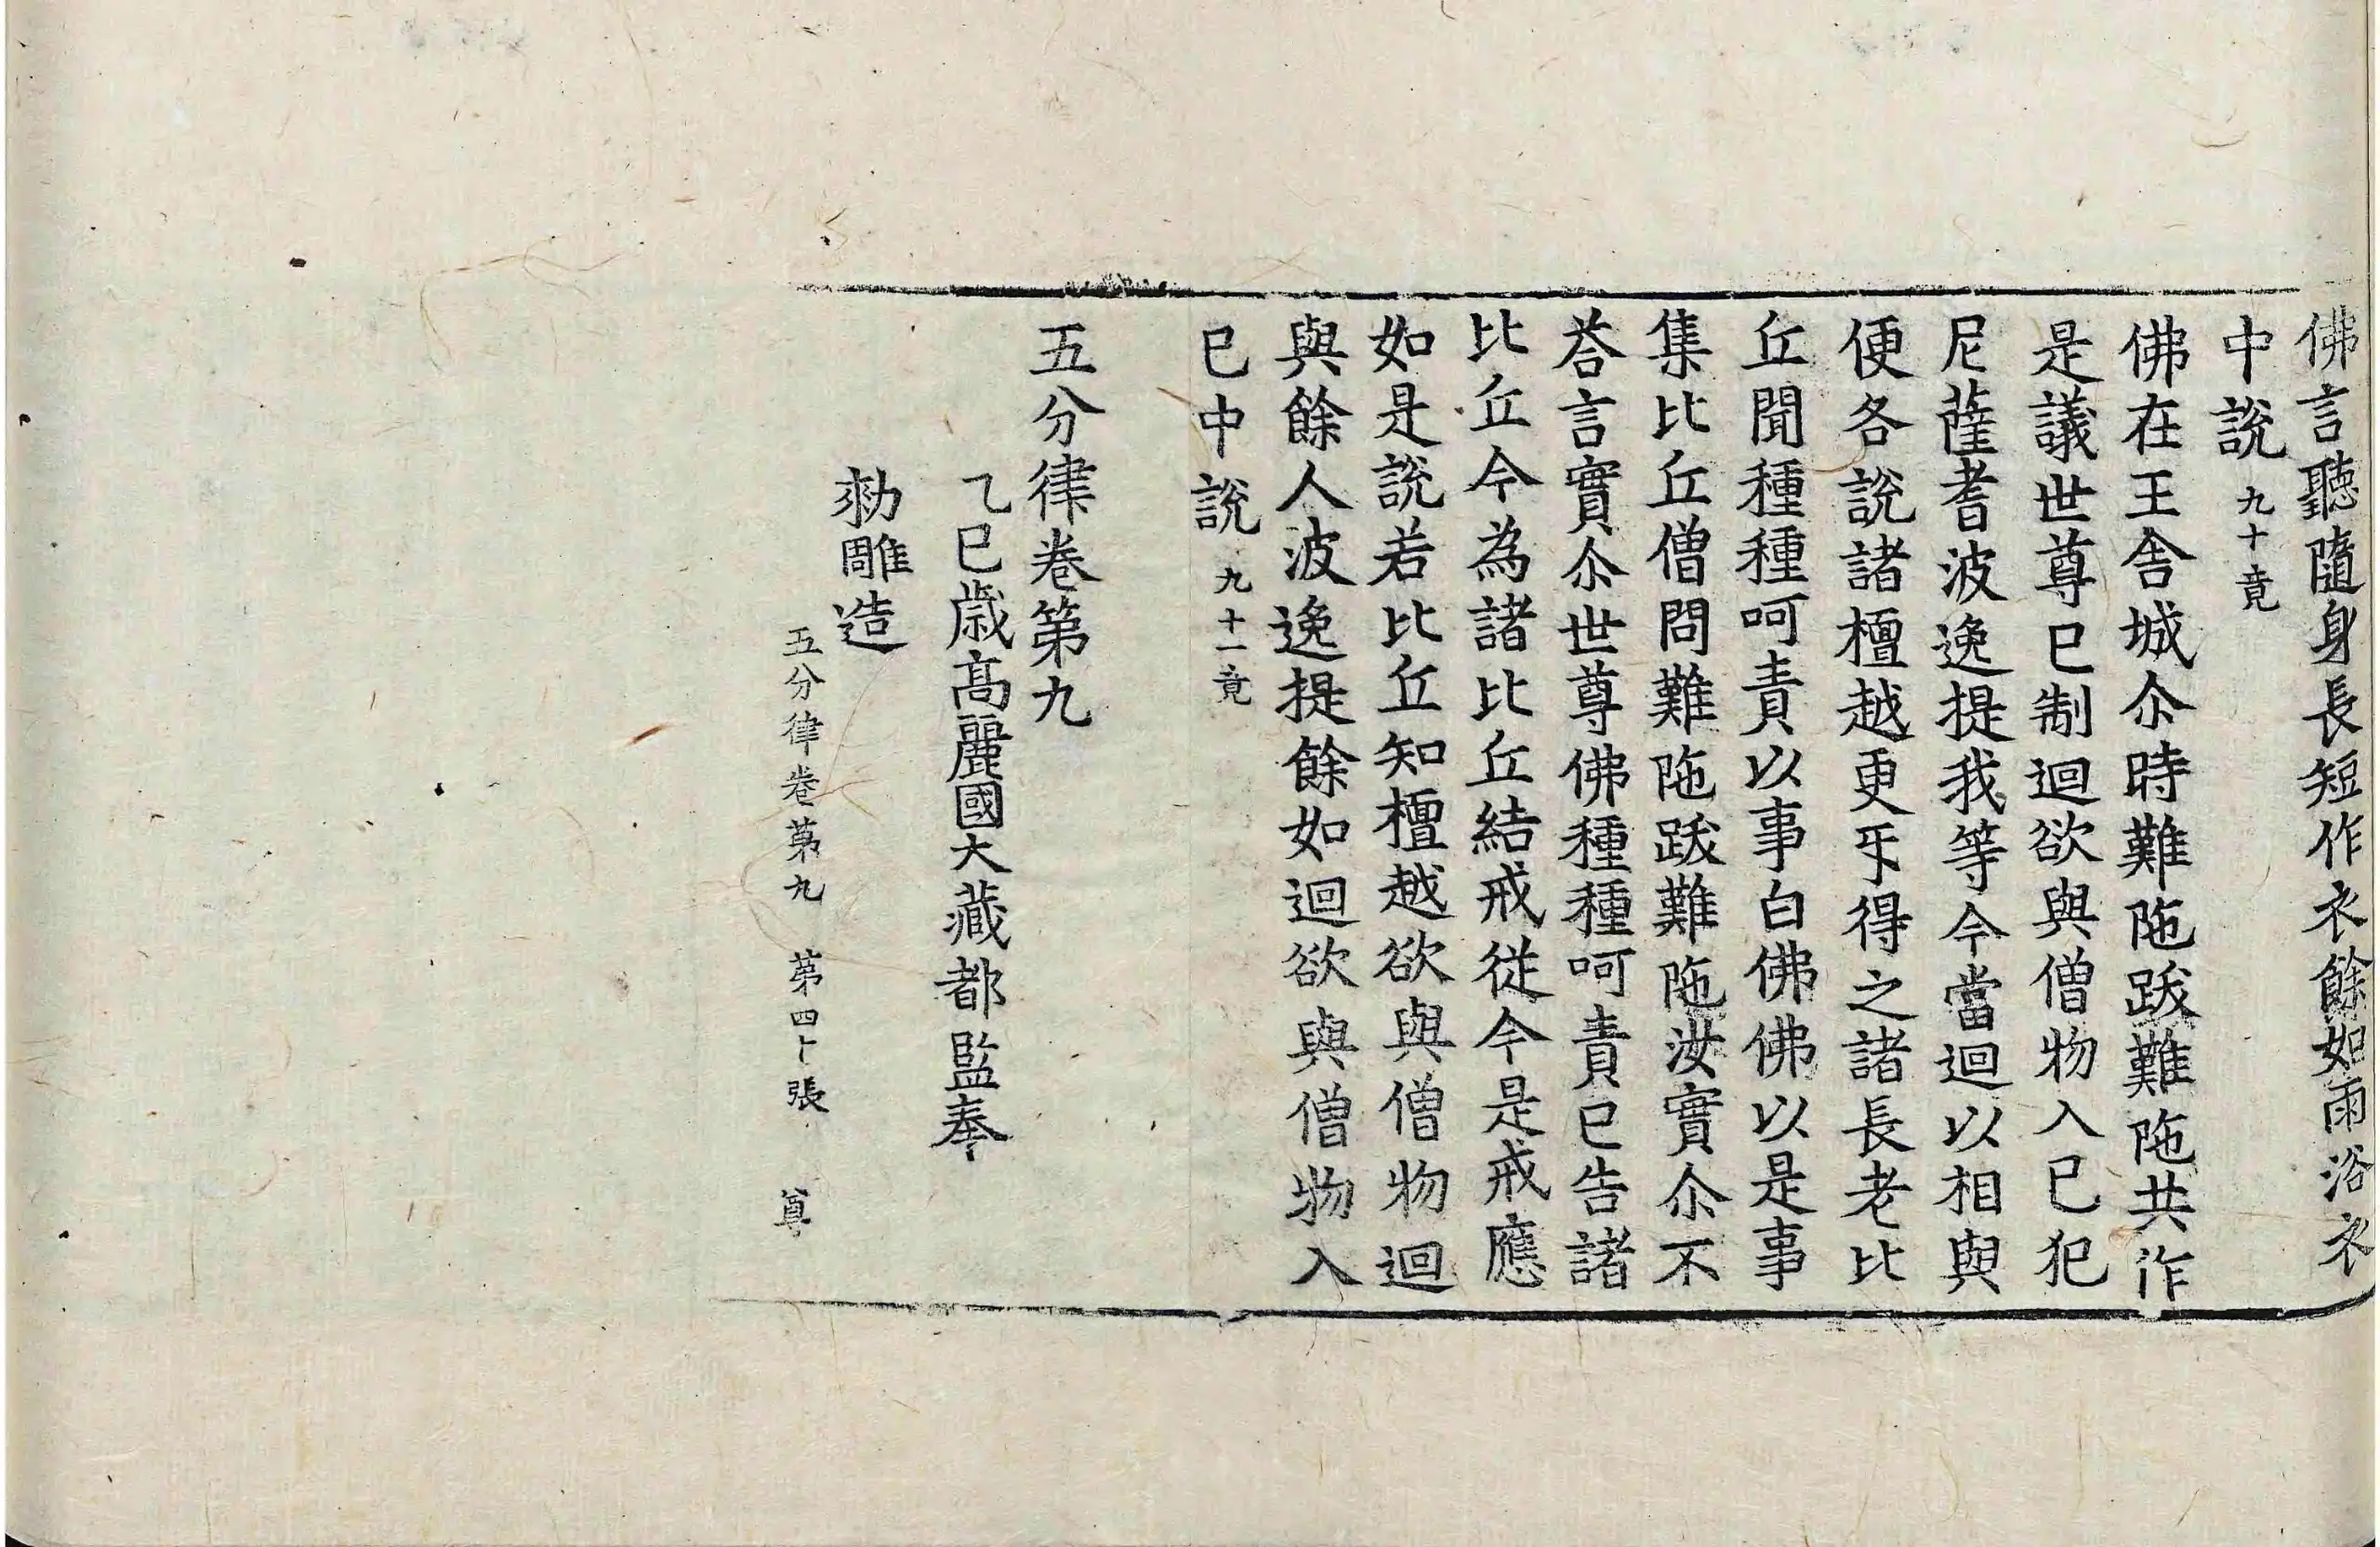 佛言聽隨身長短作衣餘如雨浴衣
中說九十竟
佛在王舍城尒時難陁跋難陁共作
是議世尊已制迴欲與僧物入已犯
尼薩耆波逸提我等今當迴以相與
便各說諸檀越更㸦得之諸長老比
丘聞種種呵責以事白佛佛以是事
集比丘僧問難陁跋難陁汝實尒不
荅言實尒世尊佛種種呵責已告諸
比丘今為諸比丘結戒從今是戒應
如是說若比丘知檀越欲與僧物迴
與餘人波逸提餘如迴欲與僧物入
已中說九十一竟
五分律卷第九
乙巳歲高麗國大藏都監奉
勑雕造
五分律卷第九 第四十張 尊